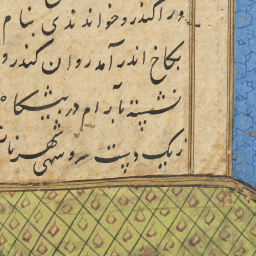 ورا کندرو خواندندی بنام
بکاخ اندر آمد روان کندرو
نشسته بآرام در پیشکاه
زیک دست سرو سهی شهرناز